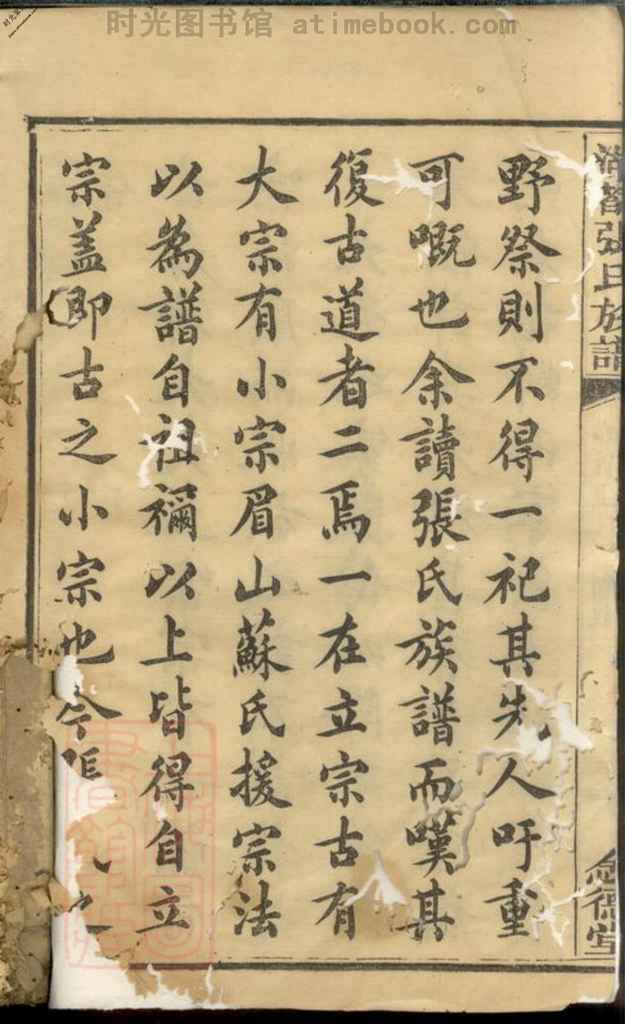 时光图书馆 atimebook.com
張氏族譜
德堂
野祭則不得一祀其先人吁重
可嘅也余讀張氏族譜而嘆其
復古道者二焉一在立宗古有
大宗有小宗眉山蘇氏援宗法
以為譜自祖禰以上皆得自立
宗盖即古之小宗也今